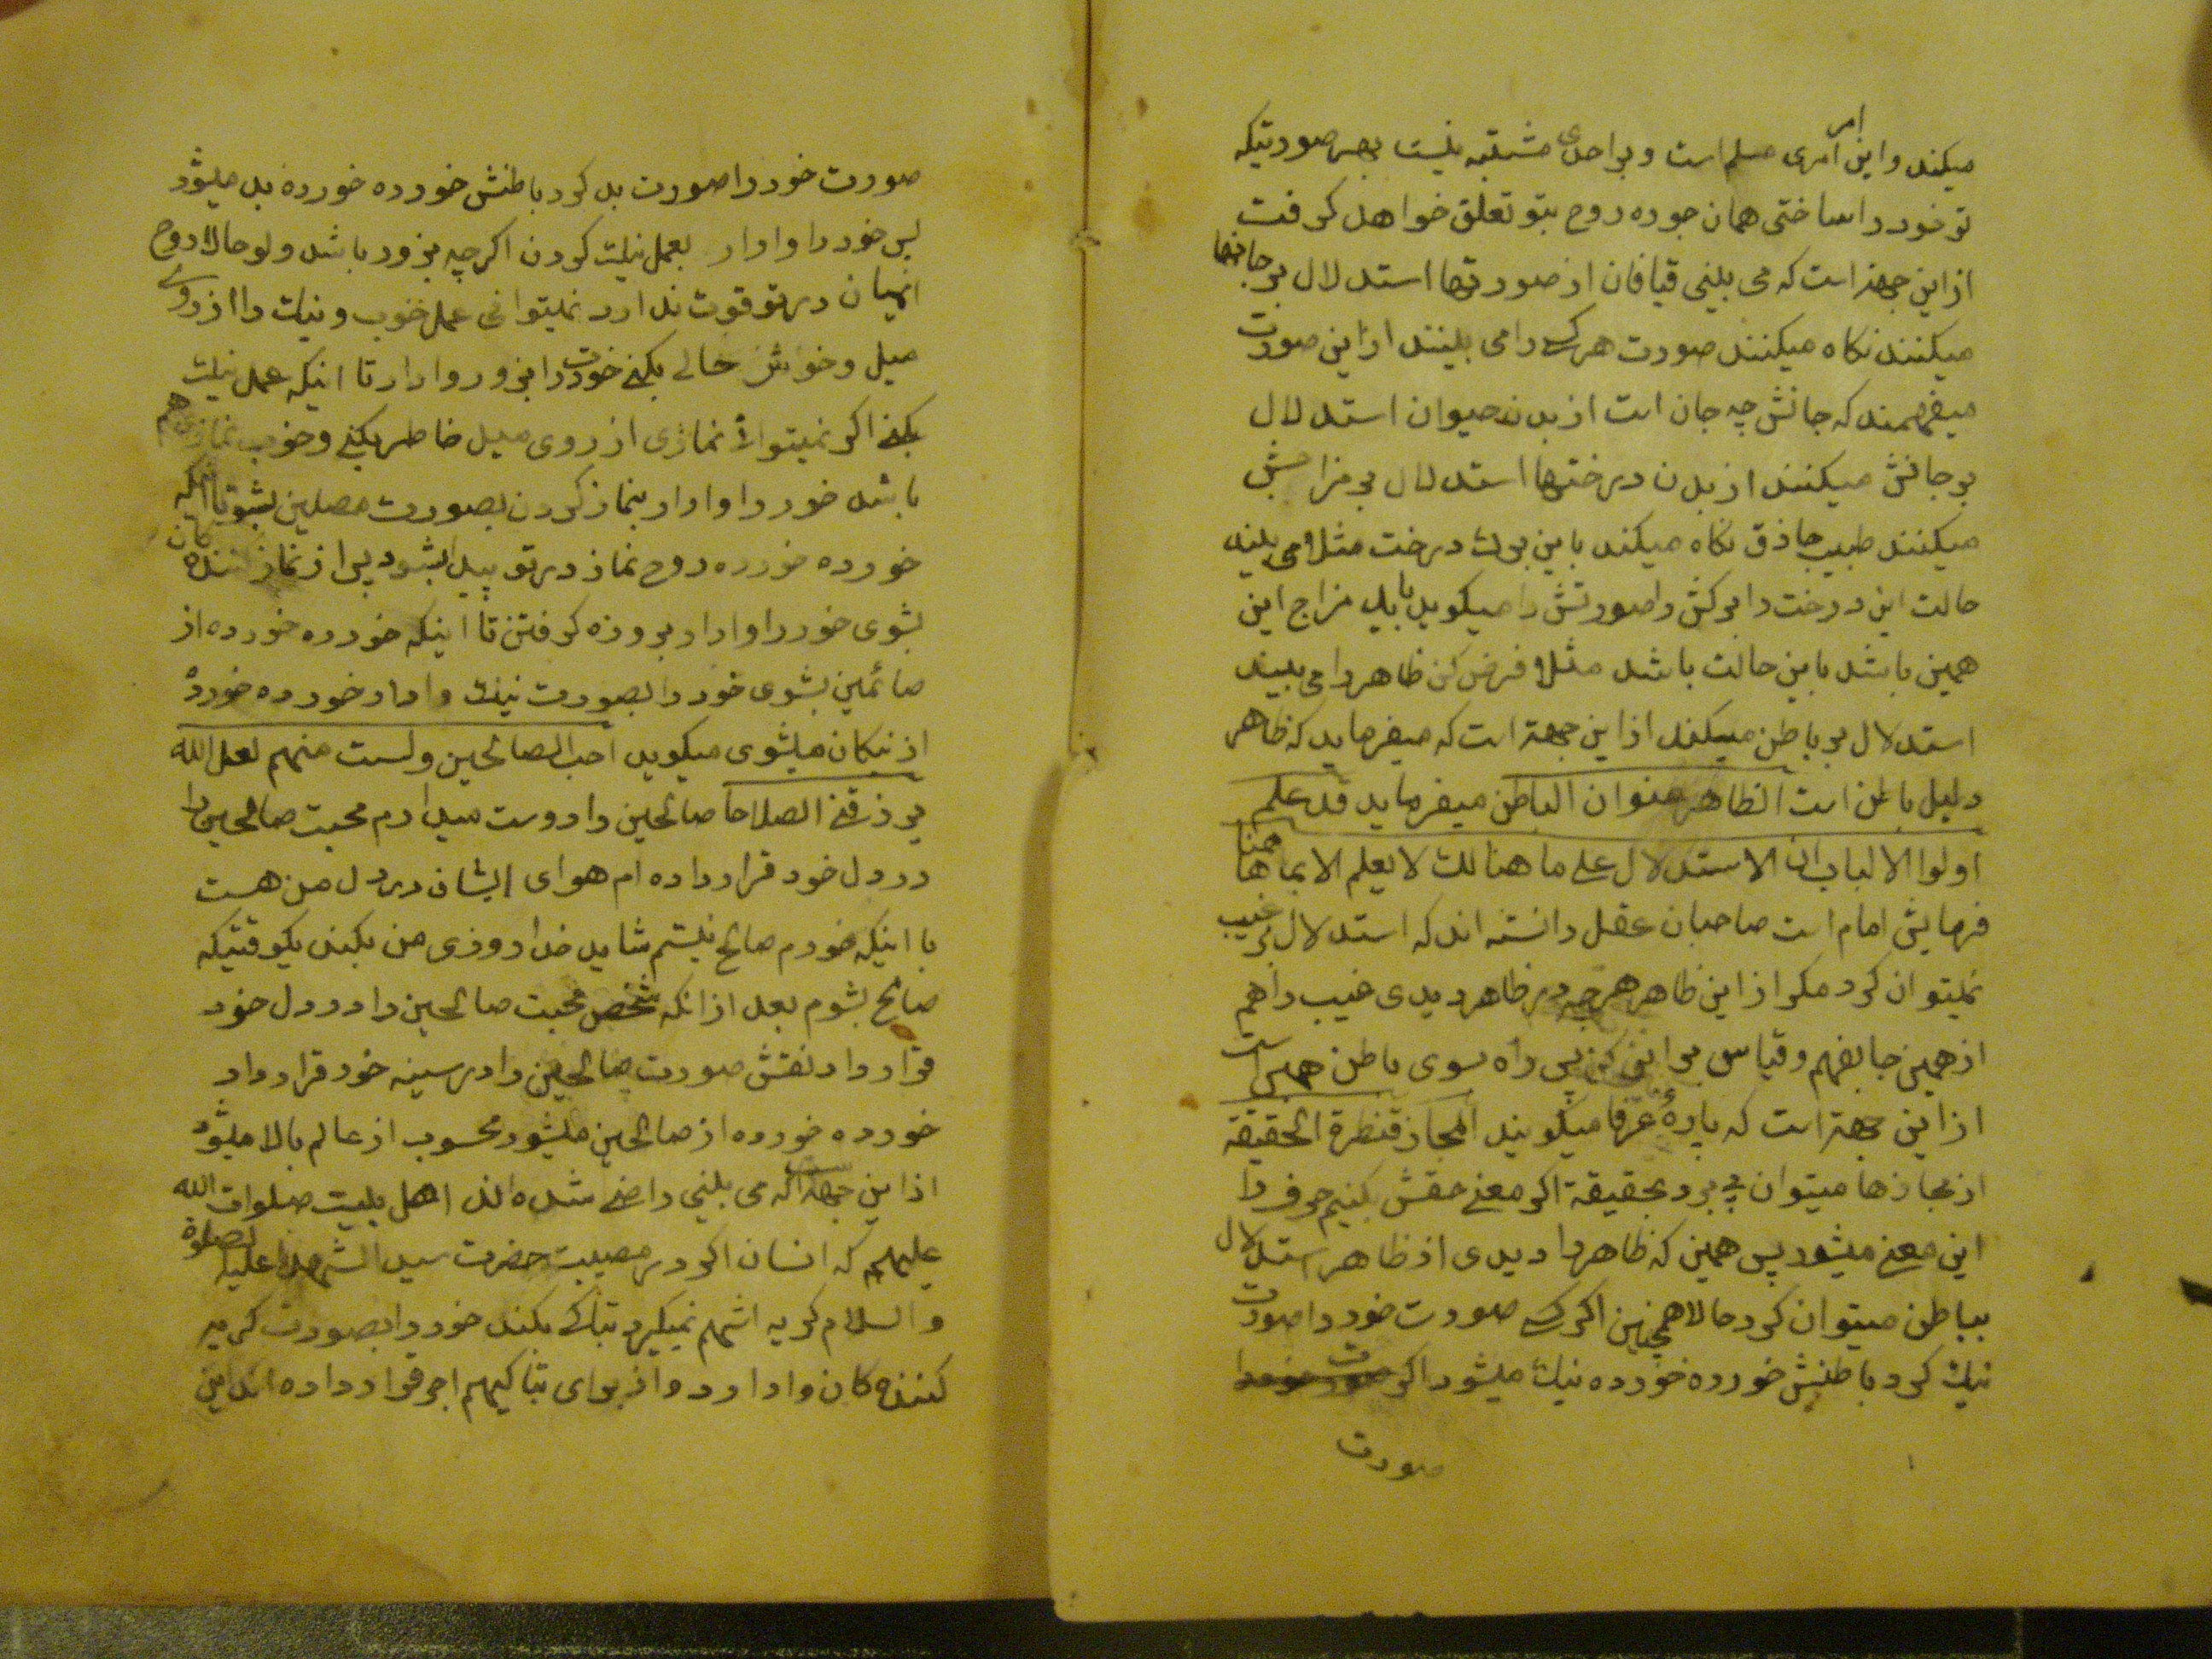 میکند و این امری مسلم است و بر احدی مشتبه نیست بهر صورتیکه
تو خود را ساختی همان جوره روح بتو تعلق خواهد کرفت
از این جهة است که می بینی قیافان از صورتها استدلال بر جانها
میکنند نکاه میکنند صورت هر کس را می بینند از این صورت
میفهمند که جانش چه جان است از بدن حیوان استدلال
بر جانش میکنند از بدن درختها استدلال بر مزاجش
میکنند طبیب حاذق نکاه میکند باین برک درخت مثلا می بیند
حالت این درخت را برکش را صورتش را میکوید باید مزاج این
همین باشد باین حالت باشد مثلا فرض کن ظاهر را می بیند
استدلال بر باطن میکند از این جهة است که میفرماید که ظاهر
دلیل باطن است الظاهر عنوان الباطن میفرماید قد علم
اولوا الالباب ان الاستدلال علی ما هنالک لا یعلم الا بما ههنا
فرمایش امام است صاحبان عقل دانسته اند که استدلال بر غیب
نمیتوان کرد مکر از این ظاهر هر چه در ظاهر دیدی غیب را هم
از همین جا بفهم و قیاس بر این کن پس راه بسوی باطن همین است
از این جهة است که پارهٔ عرفا میکویند المجاز قنطرة الحقیقة
از مجازها میتوان پی برد بحقیقة اکر معنی حقش بکنیم حرف را
این معنی میشود پس همین که ظاهر را دیدی از ظاهر استدلال
بباطن میتوان کرد حالا همچنین اکر کسی صورت خود را صورت
نیک کرد باطنش خورده خورده نیک میشود اکر
صورت
صورت خود را صورت بد کرد باطنش خورده خورده بد میشود
پس خود را وادار بعمل نیک کردن اکر چه بزور باشد ولو حالا روح
ایمان در تو قوت ندارد نمیتوانی عمل خوب و نیک را از روی
میل و خوش حالی بکنی خودت را بزور وادار تا اینکه عمل نیک
بکنی اکر نمیتوانی نمازی از روی میل خاطر بکنی و خوب نمازی هم
باشد خود را وادار بنماز کردن بصورت مصلین بشو تا اینکه
خورده خورده روح نماز در تو پیدا بشود پس از نماز کننده کان
بشوی خود را وادار بروزه کرفتن تا اینکه خورده خورده از
صائمین بشوی خود را بصورت نیک وادار خورده خورده
از نیکان میشوی میکوید احب الصالحین و لست منهم لعل الله
یرزقنی الصلاحا صالحین را دوست میدارم محبت صالحین را
در دل خود قرار داده ام هوای ایشان در دل من هست
با اینکه خودم صالح نیستم شاید خدا روزی من بکند یکوقتیکه
صالح بشوم بعد از انکه شخص محبت صالحین را در دل خود
قرار داد نقش صورت صالحین را در سینه خود قرار داد
خورده خورده از صالحین میشود محسوب از عالم بالا میشود
از این جهة است که می بینی راضی شده اند اهل بیت صلوات الله
علیهم که انسان اکر در مصیبت حضرت سید الشهدا علیه الصلوة
و السلام کریه اشهم نمیکیرد تباکی بکند خود را بصورت کریه
کننده کان وادارد و از برای تباکیهم اجر قرار داده اند این